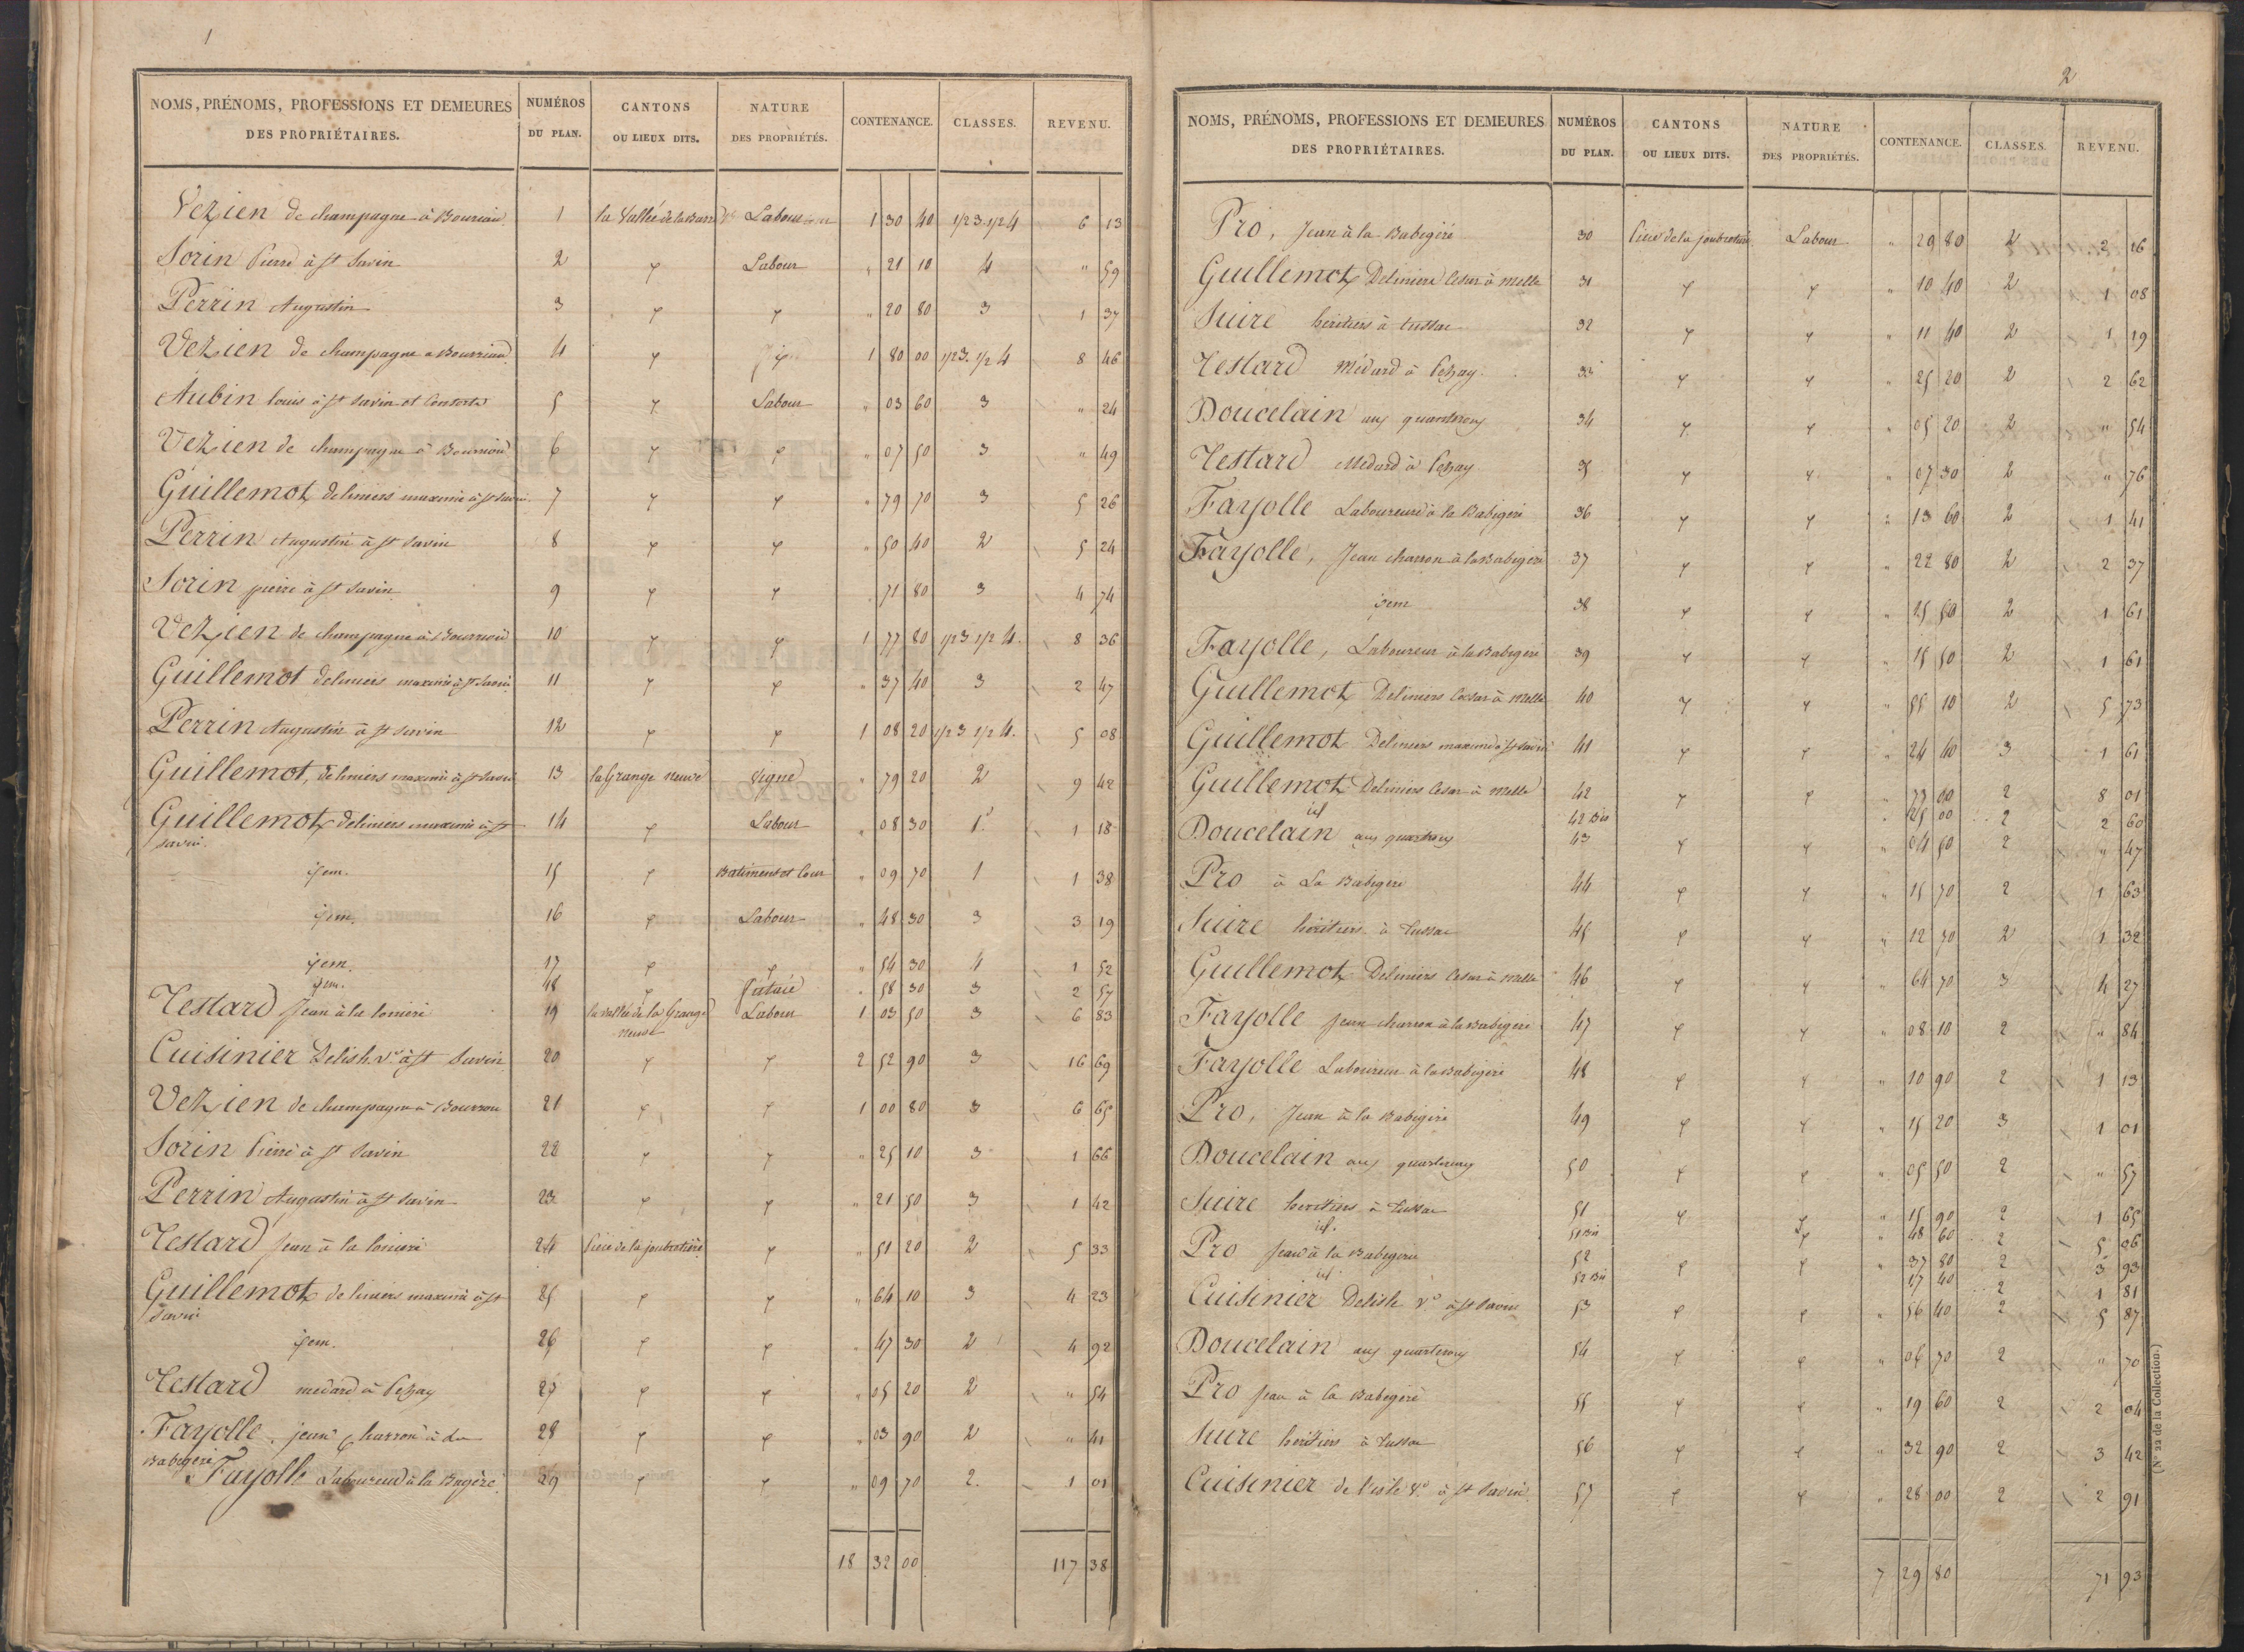 1
NOMS, PRÉNOMS, PROFESSIONS ET DEMEURES DES PROPRIÉTAIRES. NUMÉROS DU PLAN. CANTONS OU LIEUX DITS. NATURE DES PROPRIÉTÉS. CONTENANCE. CLASSES. REVENU.
Vezien de champagne à Bouriau 1 la Vallée de la Barre Labour 1 30 40 1/2 3 1/2 4 6 13
Sorin Pierre à st Savin 2 φ Labour " 21 10 4 " 59
Perrin Augustin 3 φ φ " 20 80 3 1 37
Vezien de champagne a Bourriaud 4 φ φ 1 80 00 1/2 3. 1/2 4 8 46
Aubin louis à st Savin et 5 φ Labour " 03 60 3 " 24
Vezien de champagne à 6 φ φ " 07 50 3 " 49
Guillemot deliniers maximin à st Savin 7 φ φ " 79 70 3 5 26
Perrin Augustin à st Savin 8 φ φ " 50 40 2 5 24
Sorin pierre à st Savin 9 φ φ " 71 80 3 4 74
Vezien de champagne à 10 φ φ 1 77 80 1/2 3 1/2 4. 8 36
Guillemot deliniers maximin à st Savin 11 φ φ " 37 40 3 2 47
Perrin Augustin à st Savin 12 φ φ 1 08 20 1/2 3 1/2 4. 5 08
Guillemot, deliniers maximin à st Savin 13 la Grange neuve Vigne " 79 20 2 9 42
Guillemot deliniers maximin à st 14 φ Labour " 08 30 1 1 18
Savin.
idem. 15 φ Batiment et Cour " 09 70 1 1 38
idem. 16 φ Labour " 48 30 3 3 19
idem. 17 φ φ " 54 30 4 1 52
idem. 18 φ futaie " 58 30 3 2 57
Testard Jean à la lonieri 19 la vallée de la Grange Labour 1 03 50 3 6 83
neuve
Cuisinier Delisle Ve à st Savin 20 φ φ 2 52 90 3 16 69
Vezien de champagne à Bourrou 21 φ φ 1 00 80 3 6 65
Sorin Pierre à st Savin 22 φ φ " 25 10 3 1 66
Perrin Augustin à st Savin 23 φ φ " 21 50 3 1 42
Testard jean à la lonieri 24 Pièce de la joubretière φ " 51 20 2 5 33
Guillemot deliniers maximin à st 25 φ φ " 64 10 3 4 23
Savin
idem. 26 φ φ " 47 30 2 4 92
Testard medard à Pezay 27 φ φ " 05 20 2 " 54
Fayolle. jean charron à la 28 φ φ " 03 90 2 " 41
Babegere
Fayolle Laboureur à la Bagère. 29 φ φ " 09 70 2. 1 01
18 32 00 117 38
2
NOMS, PRÉNOMS, PROFESSIONS ET DEMEURES DES PROPRIÉTAIRES. NUMÉROS DU PLAN. CANTONS OU LIEUX DITS. NATURE DES PROPRIÉTÉS. CONTENANCE. CLASSES. REVENU.
Pro, Jean à la Babegère 30 Pièce de la joubretière Labour " 20 80 2 2 16
Guillemot Deliniers Cesar à Melle 31 φ φ " 10 40 2 1 08
Suire heritiers à Lussac 32 φ φ " 11 40 2 1 19
Testard Médard à Pezay 33 φ φ " 25 20 2 2 62
Doucelain aux quarterons 34 φ φ " 05 20 2 " 54
Testard Medard à Pezay 35 φ φ " 07 30 2 " 76
Fayolle Laboureur à la Babigere 36 φ φ " 13 60 2 1 41
Fayolle, Jean charron à la Babigere 37 φ φ " 22 80 2 2 37
idem 38 φ φ " 15 50 2 1 61
Fayolle, Laboureur à la Babigere 39 φ φ " 15 50 2 1 61
Guillemot Deliniers Cesar à Melle 40 φ φ " 55 10 2 5 73
Guillemot Deliniers maximin à st Savin 41 φ φ " 24 40 3 1 61
Guillemot Deliniers Cesar à Melle 42 φ φ " 77 00 2 8 01
id 42 Bis " 25 00 2 2 60
Doucelain aux quarterons 43 φ φ " 04 50 2 " 47
Pro à La Babegere 44 φ φ " 15 70 2 1 63
Suire héritiers à Lussac 45 φ φ " 12 70 2 1 32
Guillemot Deliniers Cesar à Melle 46 φ φ " 64 70 3 4 27
Fayolle jean charron à la Babigere 47 φ φ " 08 10 2 " 84
Fayolle Laboureur à la Babigere 48 φ φ " 10 90 2 1 13
Pro, Jean à la Babigère 49 φ φ " 15 20 3 1 01
Doucelain aux quarterons 50 φ φ " 05 50 2 " 57
Suire heritiers à Lussac 51 φ φ " 15 90 2 1 65
id. 51 Bis φ " 48 60 2 5 06
Pro Jean à la Babegere 52 φ φ " 37 80 2 3 93
id. 52 Bis 17 40 2 1 81
Cuisinier Delisle Ve à st Savin 53 φ φ " 56 40 2 5 87
Doucelain aux quarterons 54 φ φ " 06 70 2 " 70
Pro Jean à la Babegere 55 φ φ " 19 60 2 2 04
Suire heritiers à Lussac 56 φ φ " 32 90 2 3 42
Cuisinier de l'isle Ve à st Savin 57 φ φ " 28 00 2 2 91
7 29 80 71 93
(N° 22 de la Collection.)